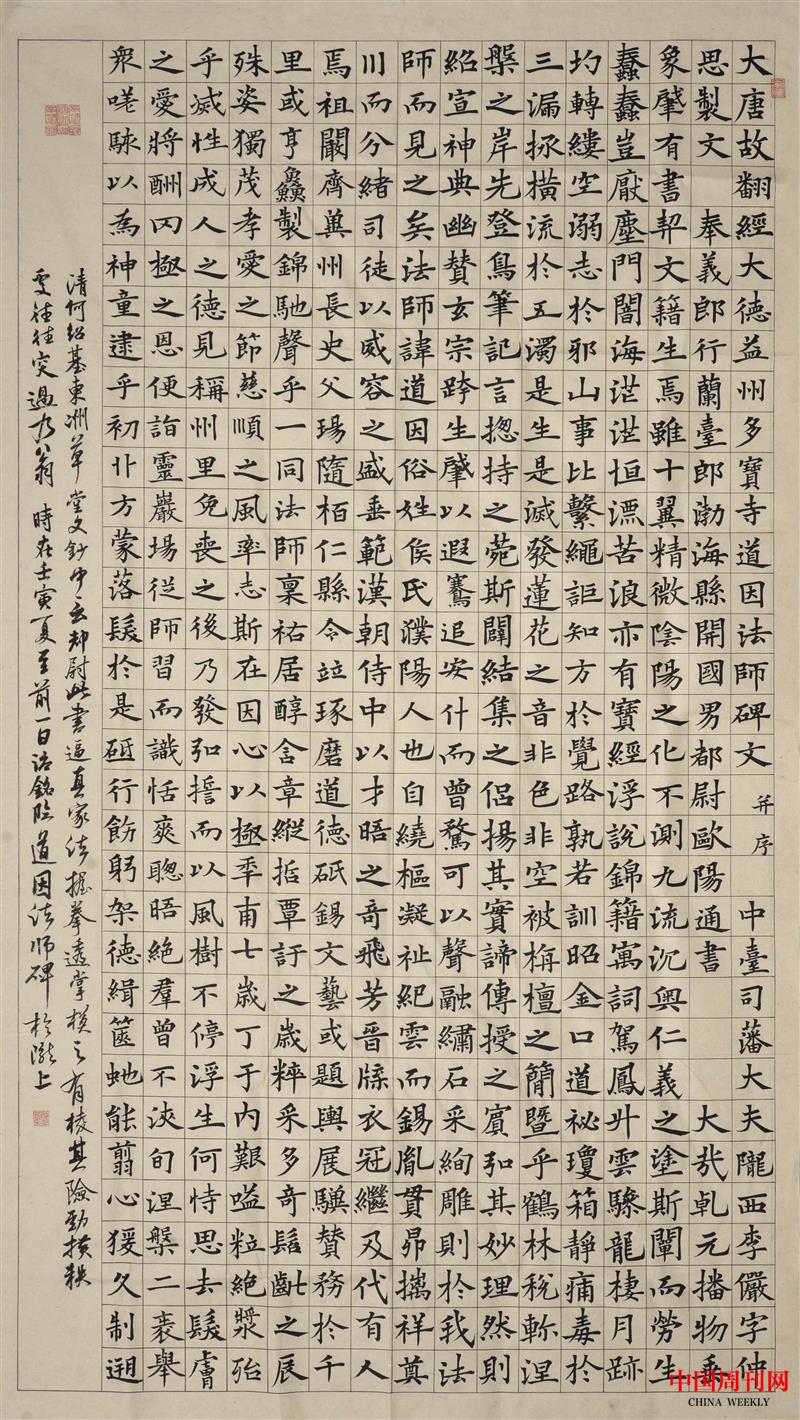 大唐故翻經大德益州多寶寺道因法師碑文 并序 中臺司藩大夫隴西李儼字仲
思製文 奉義郎行蘭臺郎渤海縣開國男都尉歐陽通書 大㢤乹元播物垂
象肇有書契文籍生焉雖十翼精微陰陽之化不測九流沉奧仁義之塗斯闡而勞生
蠢蠢豈猒塵門闇海茫茫恒漂苦浪亦有寶經浮說錦籍寓詞駕鳳升雲驂龍棲月跡
圴轉縷空溺志於邪山事比繫繩詎知方於覺路孰若訓昭金口道祕瓊箱靜痛毒於
三漏拯橫流於五濁是生是滅發蓮花之音非色非空被栴檀之簡暨乎鶴林稅軫涅
槃之岸先登鳥筆記言揔持之菀斯闢結集之侶揚其實諦傳授之賓弘其妙理然則
紹宣神典幽贊玄宗跨生肇以遐騫追安什而曾騖可以聲融繡石采絢雕則於我法
師而見之矣法師諱道因俗姓侯氏濮陽人也自繞樞凝祉紀雲而錫胤貫昴攡祥奠
川而分緒司徒以威容之盛垂範漢朝侍中以才晤之奇飛芳晉牒衣冠繼及代有人
焉祖闞齊冀州長史父瑒隨栢仁縣令竝琢磨道德砥錫文藝或題輿展驥贊務於千
里或亨鱻製錦馳聲乎一同法師稟祐居醇含章縱哲覃訏之歲粹采多奇髫齔之辰
殊姿獨茂孝愛之節慈順之風率志斯在因心以極年甫七歲丁于內艱嗌粒絕漿殆
乎滅性成人之德見稱州里免喪之後乃發弘誓而以風樹不停浮生何恃思去髮膚
之愛將酬罔極之恩便詣靈巖場從師習而識恬爽聰晤絕羣曾不浹旬涅槃二袠舉
衆嗟駭以為神童逮乎初丱方蒙落髮於是砥行飭躬架德緝篋虵能翦心猨久制遡
清何紹基東洲草堂文鈔中云都尉此書逼真家法握拳透掌模之有棱其險勁橫軼
處往往突過乃翁 時在壬寅夏至前一日銘臨道因法師碑於上
中国周刊网
CHINA WEEKLY